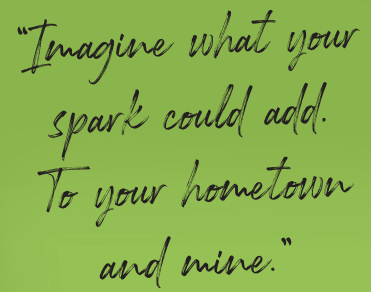 "Imagine what your
spark could add.
To your hometown
and mine."